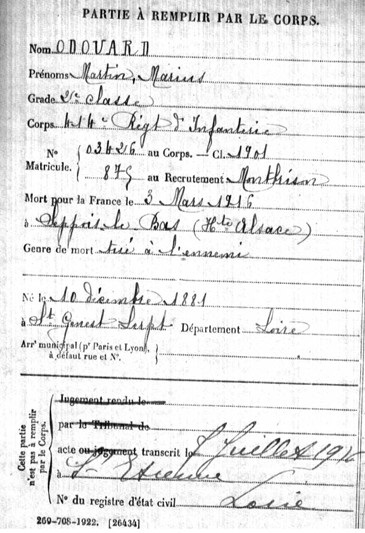 PARTIE À REMPLIR PAR LE CORPS.
Nom ODOUARD
Prénoms Martin, Marius
Grade 2e classe
Corps 414e Régt d'Infanterie
N° 03426 au Corps. — Cl. 1901
Matricule. 875 au Recrutement Montbrison
Mort pour la France le 3 Mars 1916
à Seppois le Bas (Hte Alsace)
Genre de mort tué à l'ennemi
Né le 10 décembre 1881
à St Genest Lerpt Département Loire
Arrt municipal (pr Paris et Lyon),
à défaut rue et N°.
Cette partie
n'est pas à remplir
par le Corps.
Jugement rendu le
par le Tribunal de
acte ou jugement transcrit le Juillet 1916
à St Etienne
N° du registre d'état civil Loire
269-708-1922. [26434]